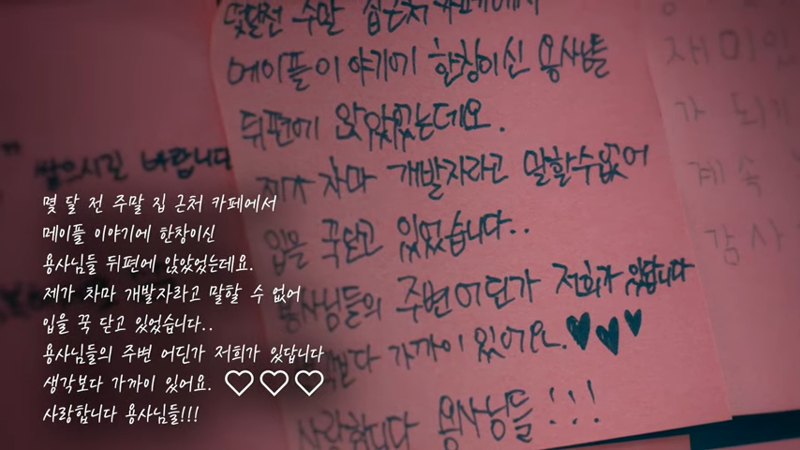 몇달전 주말 집근처 카페에서
메이플이야기에 한창이신 용사님들
뒤편에 앉았었는데요.
제가 차마 개발자라고 말할수없어
입을 꾹닫고 있었습니다..
용사님들의 주변어딘가 저희가 있답니다
생각보다 가까이 있어요.♥♥♥
사랑합니다 용사님들!!!
쌓으시길 바랍니다
재미있
가 되기
계속
감사
몇 달 전 주말 집 근처 카페에서
메이플 이야기에 한창이신
용사님들 뒤편에 앉았었는데요.
제가 차마 개발자라고 말할 수 없어
입을 꾹 닫고 있었습니다..
용사님들의 주변 어딘가 저희가 있답니다
생각보다 가까이 있어요. ♡♡♡
사랑합니다 용사님들!!!